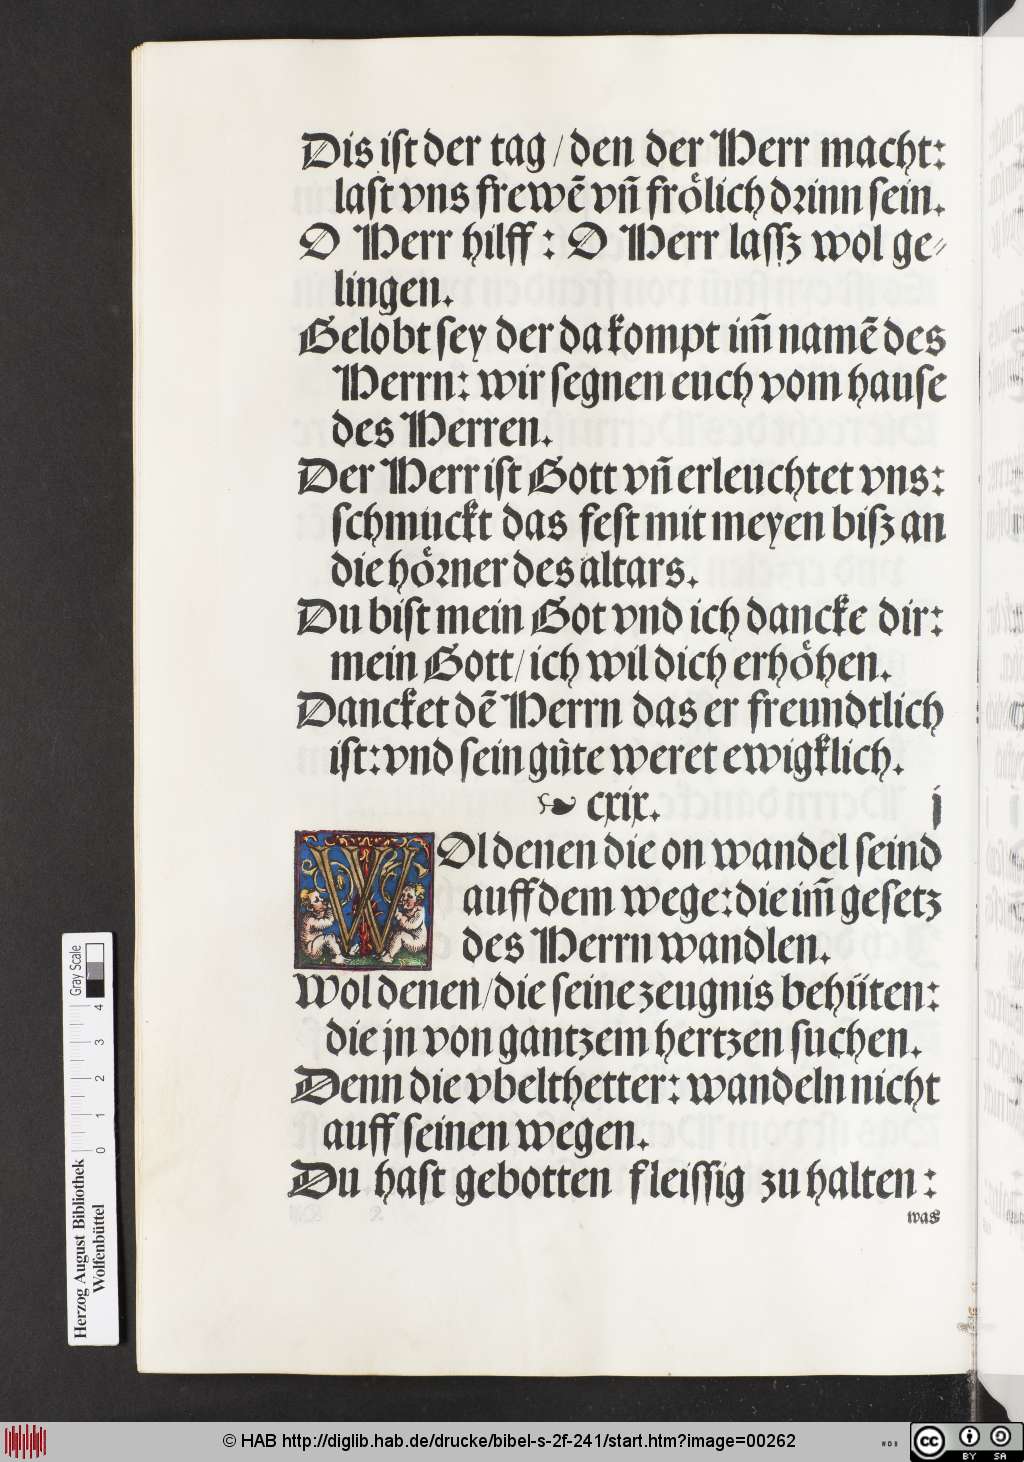 Dis ist der tag / den der Herr macht:
last vns frewē vñ frölich drinn sein.
O Herr hilff: O Herr lassz wol ge⸗
lingen.
Gelobt sey der da kompt im̄ namē des
Herrn: wir segnen euch vom hause
des Herren.
Der Herr ist Gott vñ erleuchtet vns:
schmuckt das fest mit meyen bisz an
die hörner des altars.
Du bist mein Got vnd ich dancke dir:
mein Gott/ ich wil dich erhöhen.
Dancket dē Herrn das er freundtlich
ist: vnd sein güte weret ewigklich.
cxix. j
WOl denen die on wandel seind
auff dem wege: die im̄ gesetz
des Herrn wandlen.
Wol denen/ die seine zeugnis behüten:
die jn von gantzem hertzen suchen.
Denn die vbelthetter: wandeln nicht
auff seinen wegen.
Du hast gebotten fleissig zu halten:
was
Gray Scale
0 1 2 3 4
Herzog August Bibliothek
Wolfenbüttel
© HAB http://diglib.hab.de/drucke/bibel-s-2f-241/start.htm?image=00262
WDB
cc BY SA